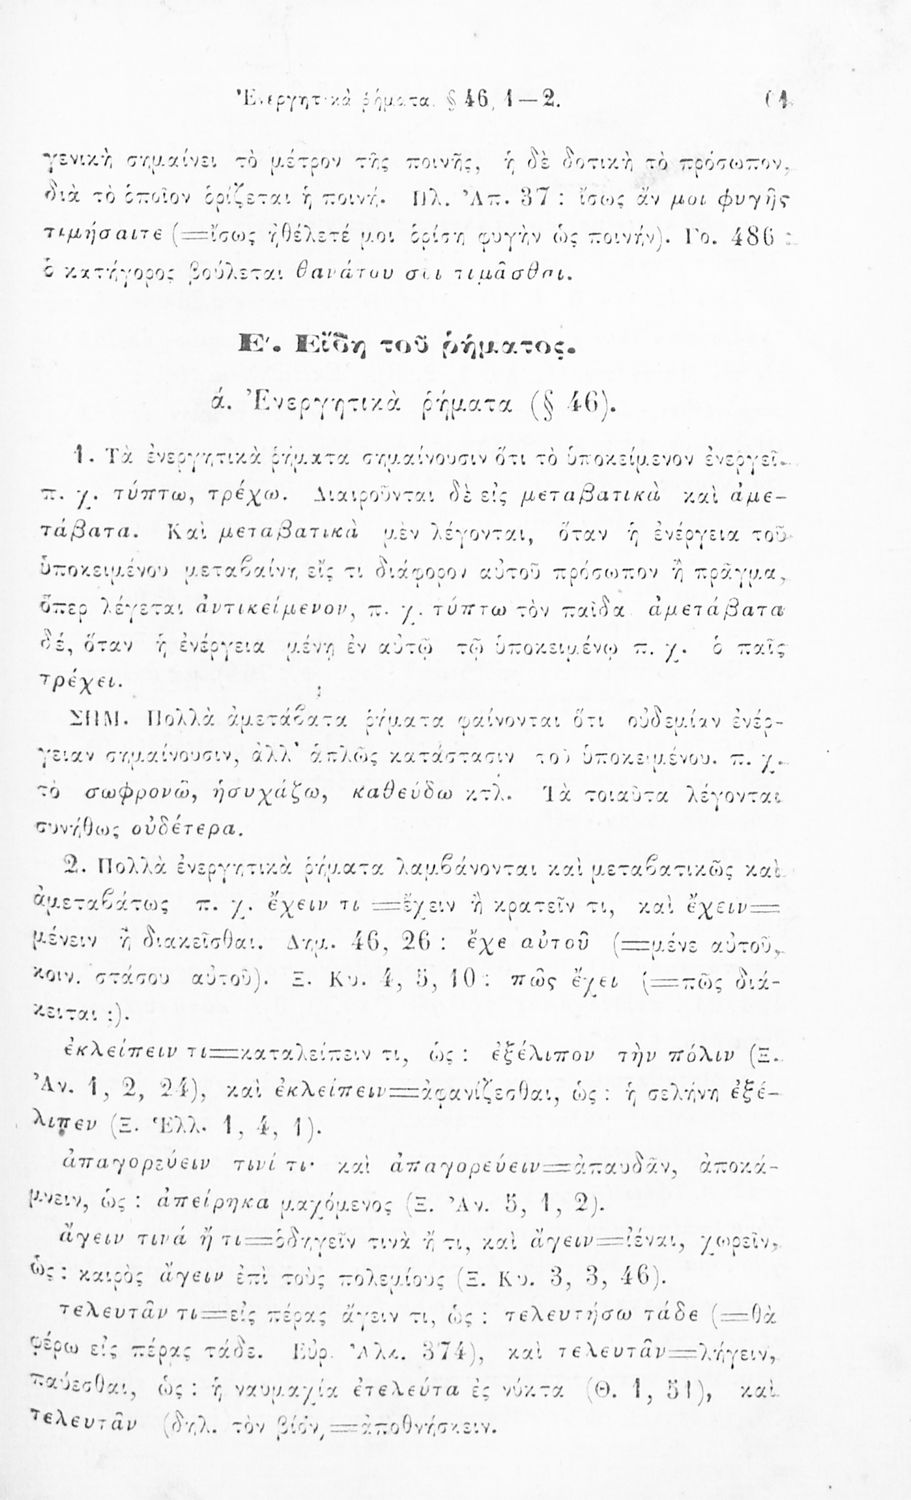 Ἐνεργητικὰ ῥήματα. § 46, 1—2.
γενικὴ σημαίνει τὸ μέτρον τῆς ποινῆς, ἡ δὲ δοτικὴ τὸ πρόσωπον,
διὰ τὸ ὁποῖον ὁρίζεται ἡ ποινή. Πλ. Ἀπ. 37 : ἴσως ἄν μοι φυγῆς
τιμήσαιτε (=ἴσως ἠθέλετέ μοι ὁρίση φυγὴν ὡς ποινήν). Γο. 486 :
ὁ κατήγορος βούλεται θανάτου σοι τιμᾶσθαι.
Ε΄. Εἴδη τοῦ ῥήματος.
ά. Ἐνεργητικὰ ῥήματα (§ 46).
1. Τὰ ἐνεργητικὰ ῥήματα σημαίνουσιν ὅτι τὸ ὑποκείμενον ἐνεργεῖ.
π. χ. τύπτω, τρέχω. Διαιροῦνται δὲ εἰς μεταβατικὰ καὶ ἀμε-
τάβατα. Καὶ μεταβατικὰ μὲν λέγονται, ὅταν ἡ ἐνέργεια τοῦ
ὑποκειμένου μεταβαίνῃ εἴς τι διάφορον αὐτοῦ πρόσωπον ἢ πρᾶγμα,
ὅπερ λέγεται ἀντικείμενον, π. χ. τύπτω τὸν παῖδα ἀμετάβατα
δέ, ὅταν ἡ ἐνέργεια μένῃ ἐν αὐτῷ τῷ ὑποκειμένῳ π. χ. ὁ παῖς
τρέχει.
ΣΗΜ. Πολλὰ ἀμετάβατα ῥήματα φαίνονται ὅτι οὐδεμίαν ἐνέρ-
γειαν σημαίνουσιν, ἀλλ' ἁπλῶς κατάστασιν τοῦ ὑποκειμένου. π. χ.
τὸ σωφρονῶ, ἡσυχάζω, καθεύδω κτλ. Τὰ τοιαῦτα λέγονται
συνήθως οὐδέτερα.
2. Πολλὰ ἐνεργητικὰ ῥήματα λαμβάνονται καὶ μεταβατικῶς καὶ
ἀμεταβάτως π. χ. ἔχειν τι =ἔχειν ἢ κρατεῖν τι, καὶ ἔχειν=
μένειν ἢ διακεῖσθαι. Δημ. 46, 26 : ἔχε αὐτοῦ (=μένε αὐτοῦ,
κοιν. στάσου αὐτοῦ). Ξ. Κυ. 4, 5, 10 : πῶς ἔχει (=πῶς διά-
κειται ;).
ἐκλείπειν τι=καταλείπειν τι, ὡς : ἐξέλιπον τὴν πόλιν (Ξ.
Ἀν. 1, 2, 24), καὶ ἐκλείπειν=ἀφανίζεσθαι, ὡς : ἡ σελήνη ἐξέ-
λιπεν (Ξ. Ἑλλ. 1, 4, 1).
ἀπαγορεύειν τινί τι· καὶ ἀπαγορεύειν=ἀπαυδᾶν, ἀποκά-
μνειν, ὡς : ἀπείρηκα μαχόμενος (Ξ. Ἀν. 5, 1, 2).
ἄγειν τινά ἤ τι=ὁδηγεῖν τινὰ ἤ τι, καὶ ἄγειν=ἰέναι, χωρεῖν,
ὡς : καιρὸς ἄγειν ἐπὶ τοὺς πολεμίους (Ξ. Κυ. 3, 3, 46).
τελευτᾶν τι=εἰς πέρας ἄγειν τι, ὡς : τελευτήσω τάδε (=θὰ
φέρω εἰς πέρας τάδε. Εὐρ. Ἀλκ. 374), καὶ τελευτᾶν=λήγειν,
παύεσθαι, ὡς : ἡ ναυμαχία ἐτελεύτα ἐς νύκτα (Θ. 1, 51), καὶ
τελευτᾶν (δηλ. τὸν βίον)=ἀποθνήσκειν.